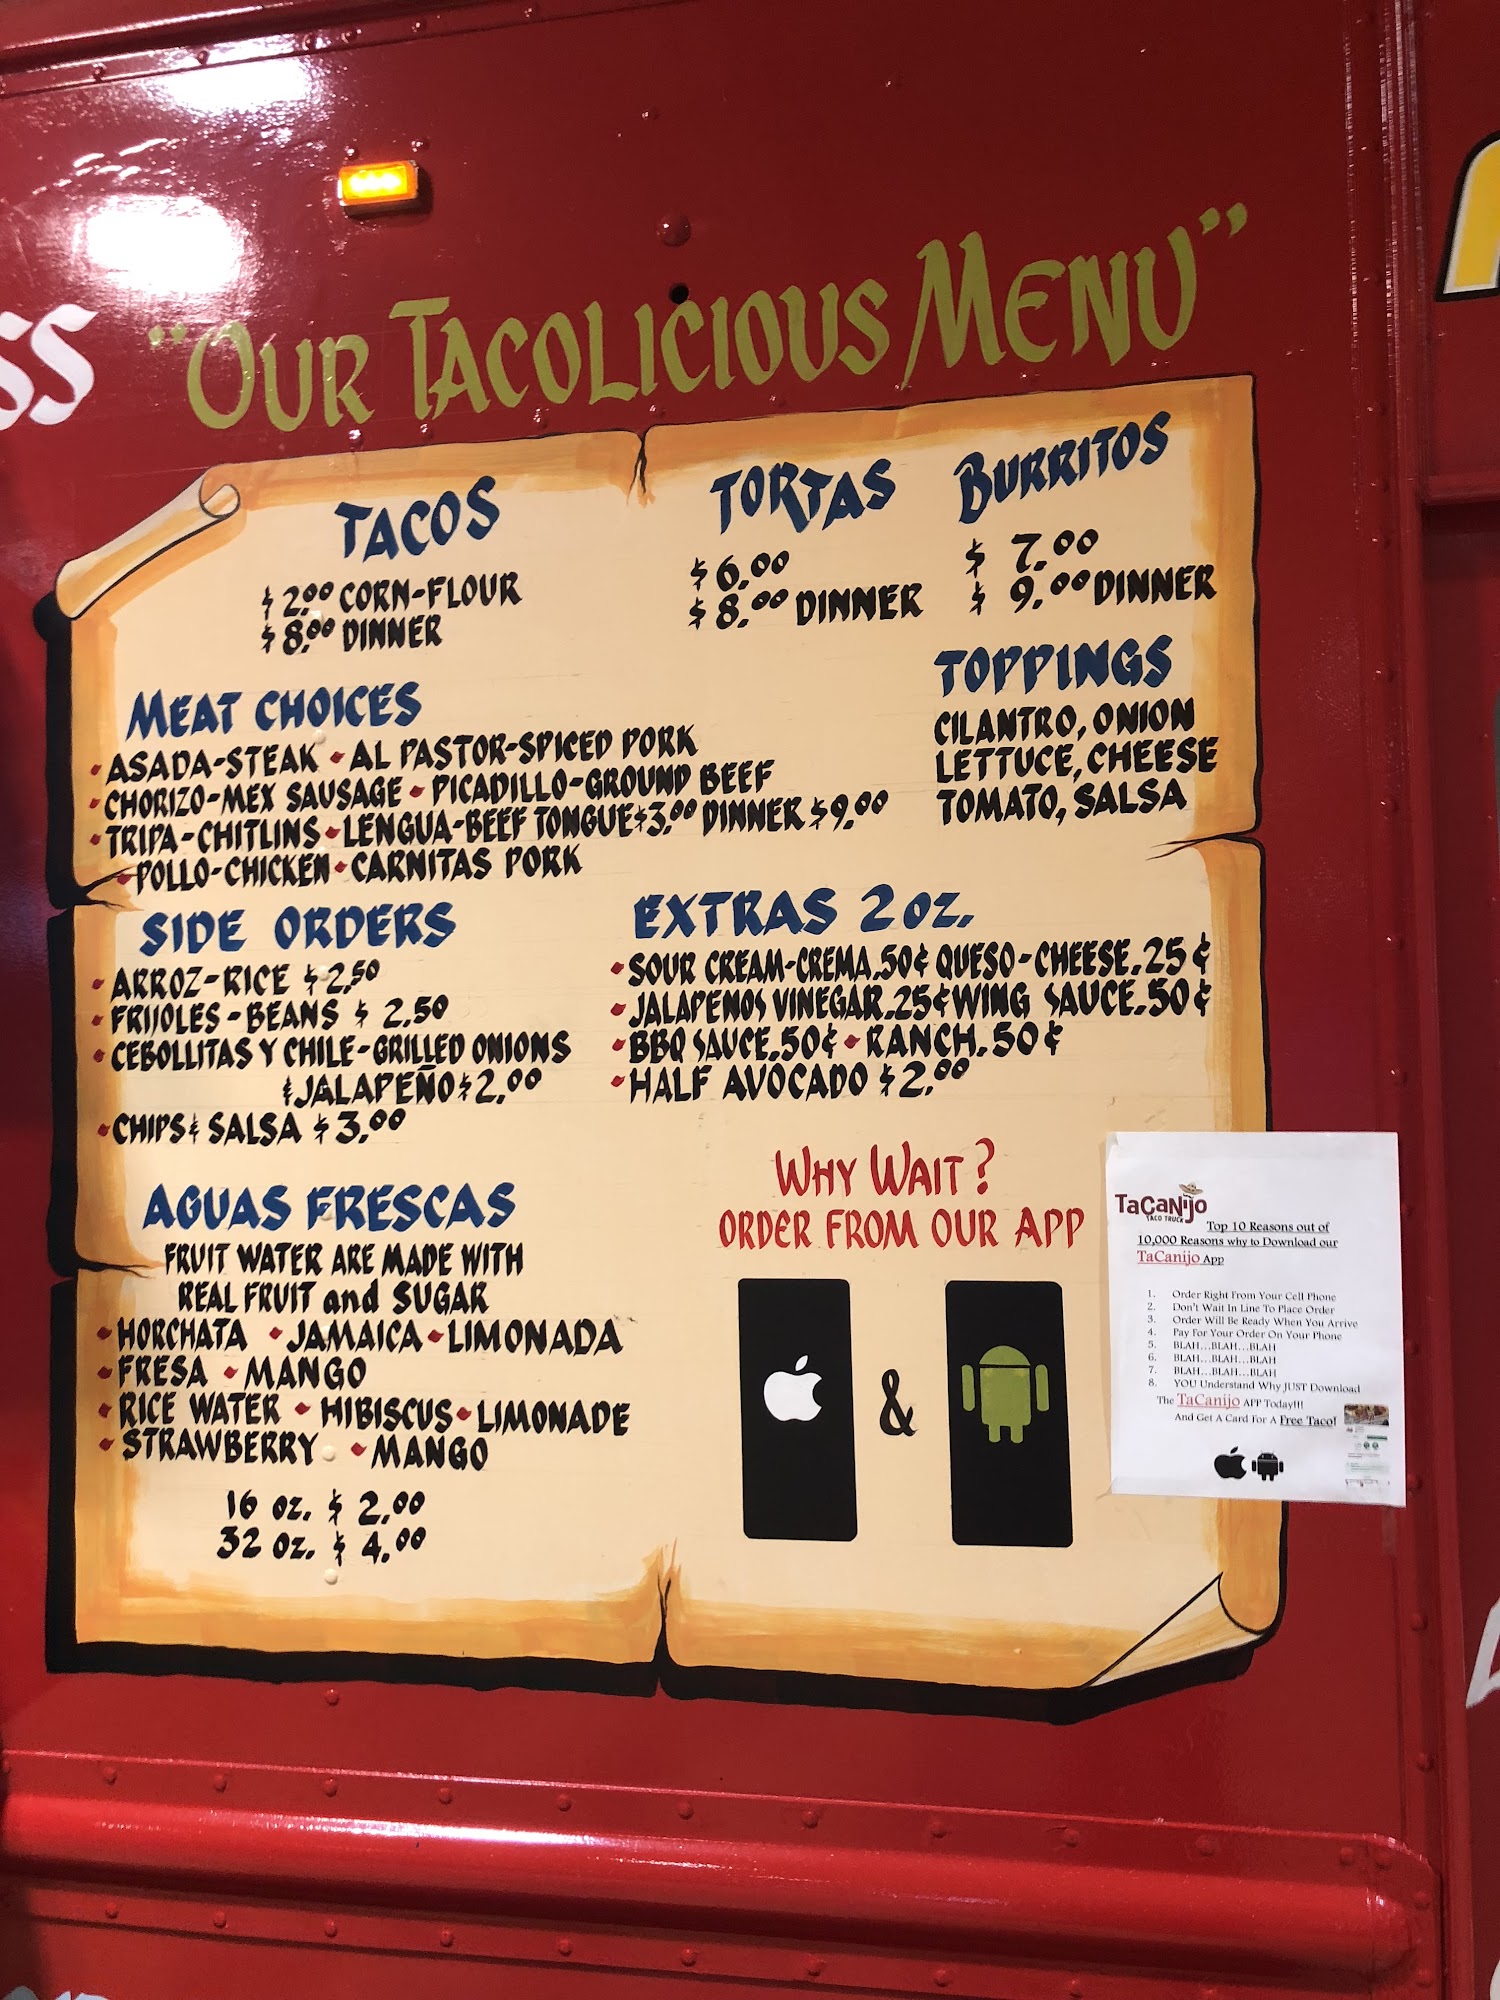 SS
"OUR TACOLICIOUS MENU"
TACOS
$2.00 CORN-FLOUR
$8.00 DINNER
TORTAS
$6.00
$8.00 DINNER
BURRITOS
$ 7.00
$ 9.00 DINNER
MEAT CHOICES
• ASADA-STEAK • AL PASTOR-SPICED PORK
• CHORIZO-MEX SAUSAGE • PICADILLO-GROUND BEEF
• TRIPA-CHITLINS • LENGUA-BEEF TONGUE $3.00 DINNER $9.00
• POLLO-CHICKEN • CARNITAS PORK
TOPPINGS
CILANTRO, ONION
LETTUCE, CHEESE
TOMATO, SALSA
SIDE ORDERS
• ARROZ-RICE $2.50
• FRIJOLES-BEANS $ 2.50
• CEBOLLITAS Y CHILE-GRILLED ONIONS
& JALAPEÑO $2.00
• CHIPS & SALSA $3.00
EXTRAS 2 OZ.
• SOUR CREAM-CREMA .50¢ QUESO-CHEESE .25¢
• JALAPENOS VINEGAR .25¢ WING SAUCE .50¢
• BBQ SAUCE .50¢ • RANCH .50¢
• HALF AVOCADO $2.00
AGUAS FRESCAS
FRUIT WATER ARE MADE WITH
REAL FRUIT and SUGAR
• HORCHATA • JAMAICA • LIMONADA
• FRESA • MANGO
• RICE WATER • HIBISCUS • LIMONADE
• STRAWBERRY • MANGO
16 oz. $ 2.00
32 oz. $ 4.00
WHY WAIT?
ORDER FROM OUR APP
&
TaCaNijo
TACO TRUCK
Top 10 Reasons out of
10,000 Reasons why to Download our
TaCanijo App
1. Order Right From Your Cell Phone
2. Don't Wait In Line To Place Order
3. Order Will Be Ready When You Arrive
4. Pay For Your Order On Your Phone
5. BLAH...BLAH...BLAH
6. BLAH...BLAH...BLAH
7. BLAH...BLAH...BLAH
8. YOU Understand Why JUST Download
The TaCanijo APP Today!!!
And Get A Card For A Free Taco!